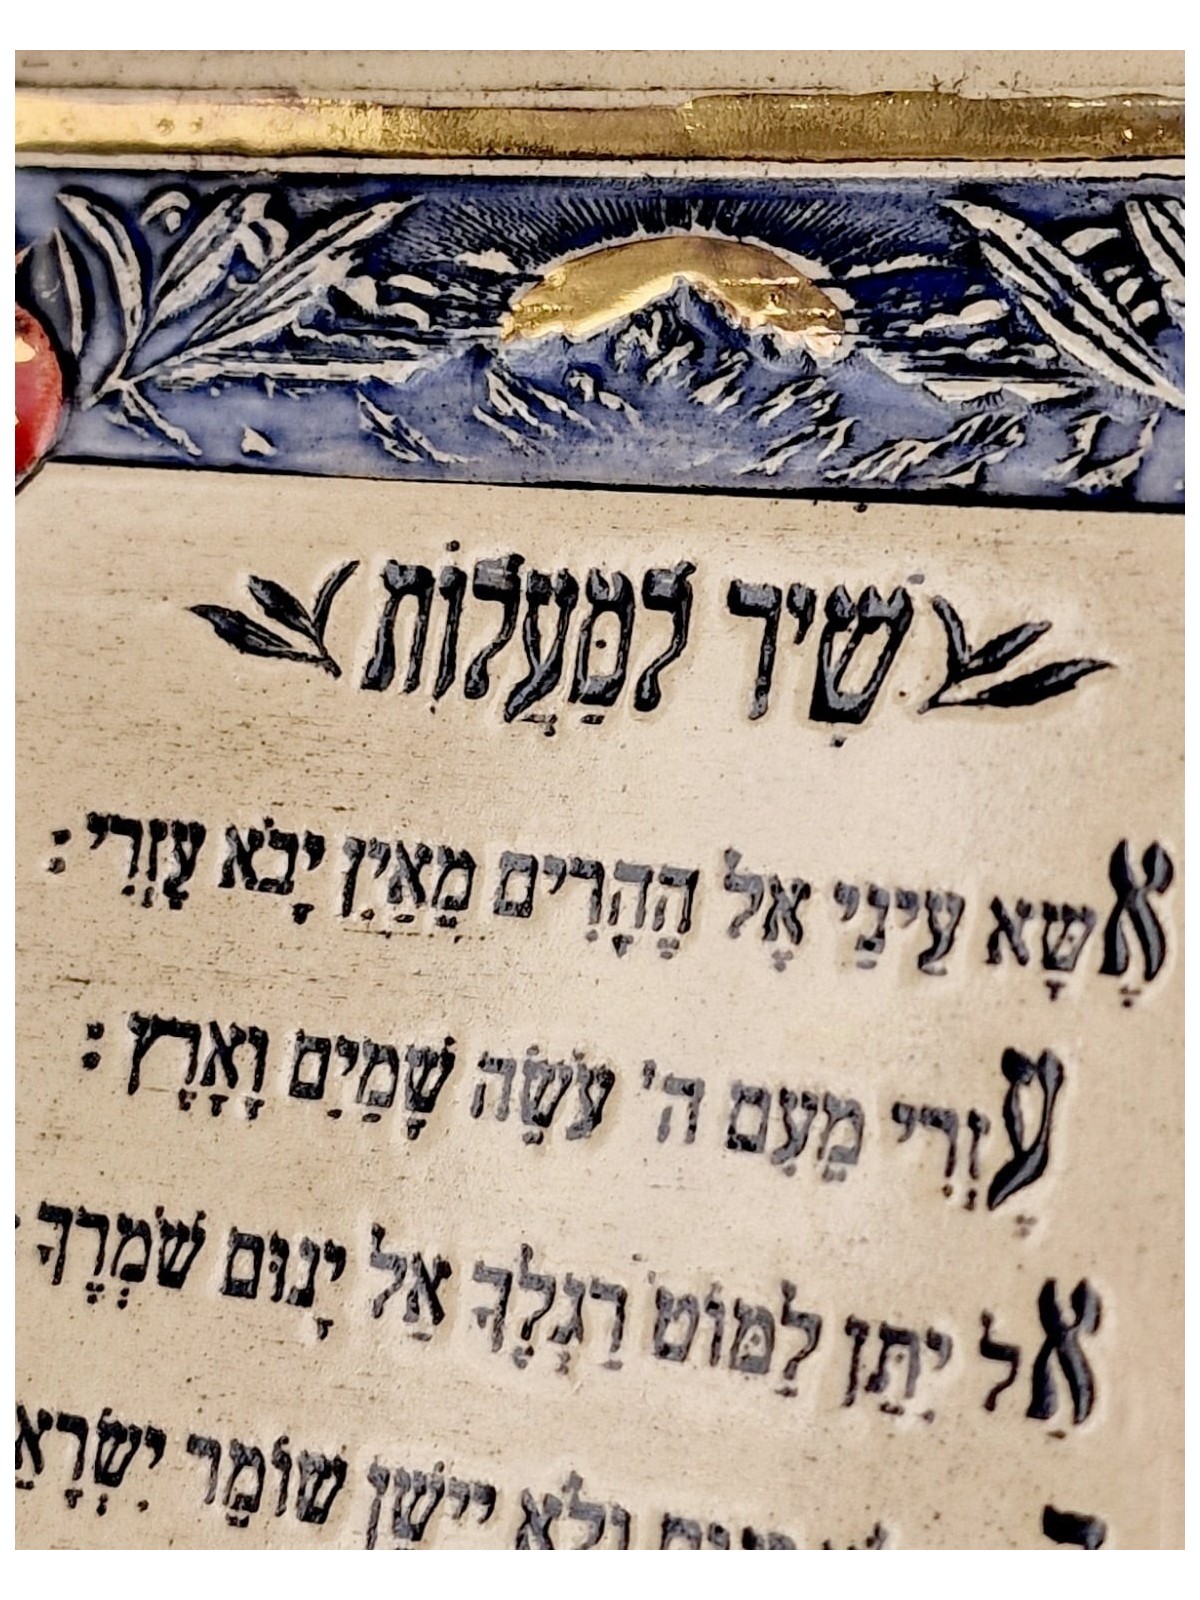 שִׁיר לַמַּעֲלוֹת
אֶשָּׂא עֵינַי אֶל הֶהָרִים מֵאַיִן יָבֹא עֶזְרִי :
עֶזְרִי מֵעִם ה' עֹשֵׂה שָׁמַיִם וָאָרֶץ :
אַל יִתֵּן לַמּוֹט רַגְלֶךָ אַל יָנוּם שֹׁמְרֶךָ :
וְלֹא יִישָׁן שׁוֹמֵר